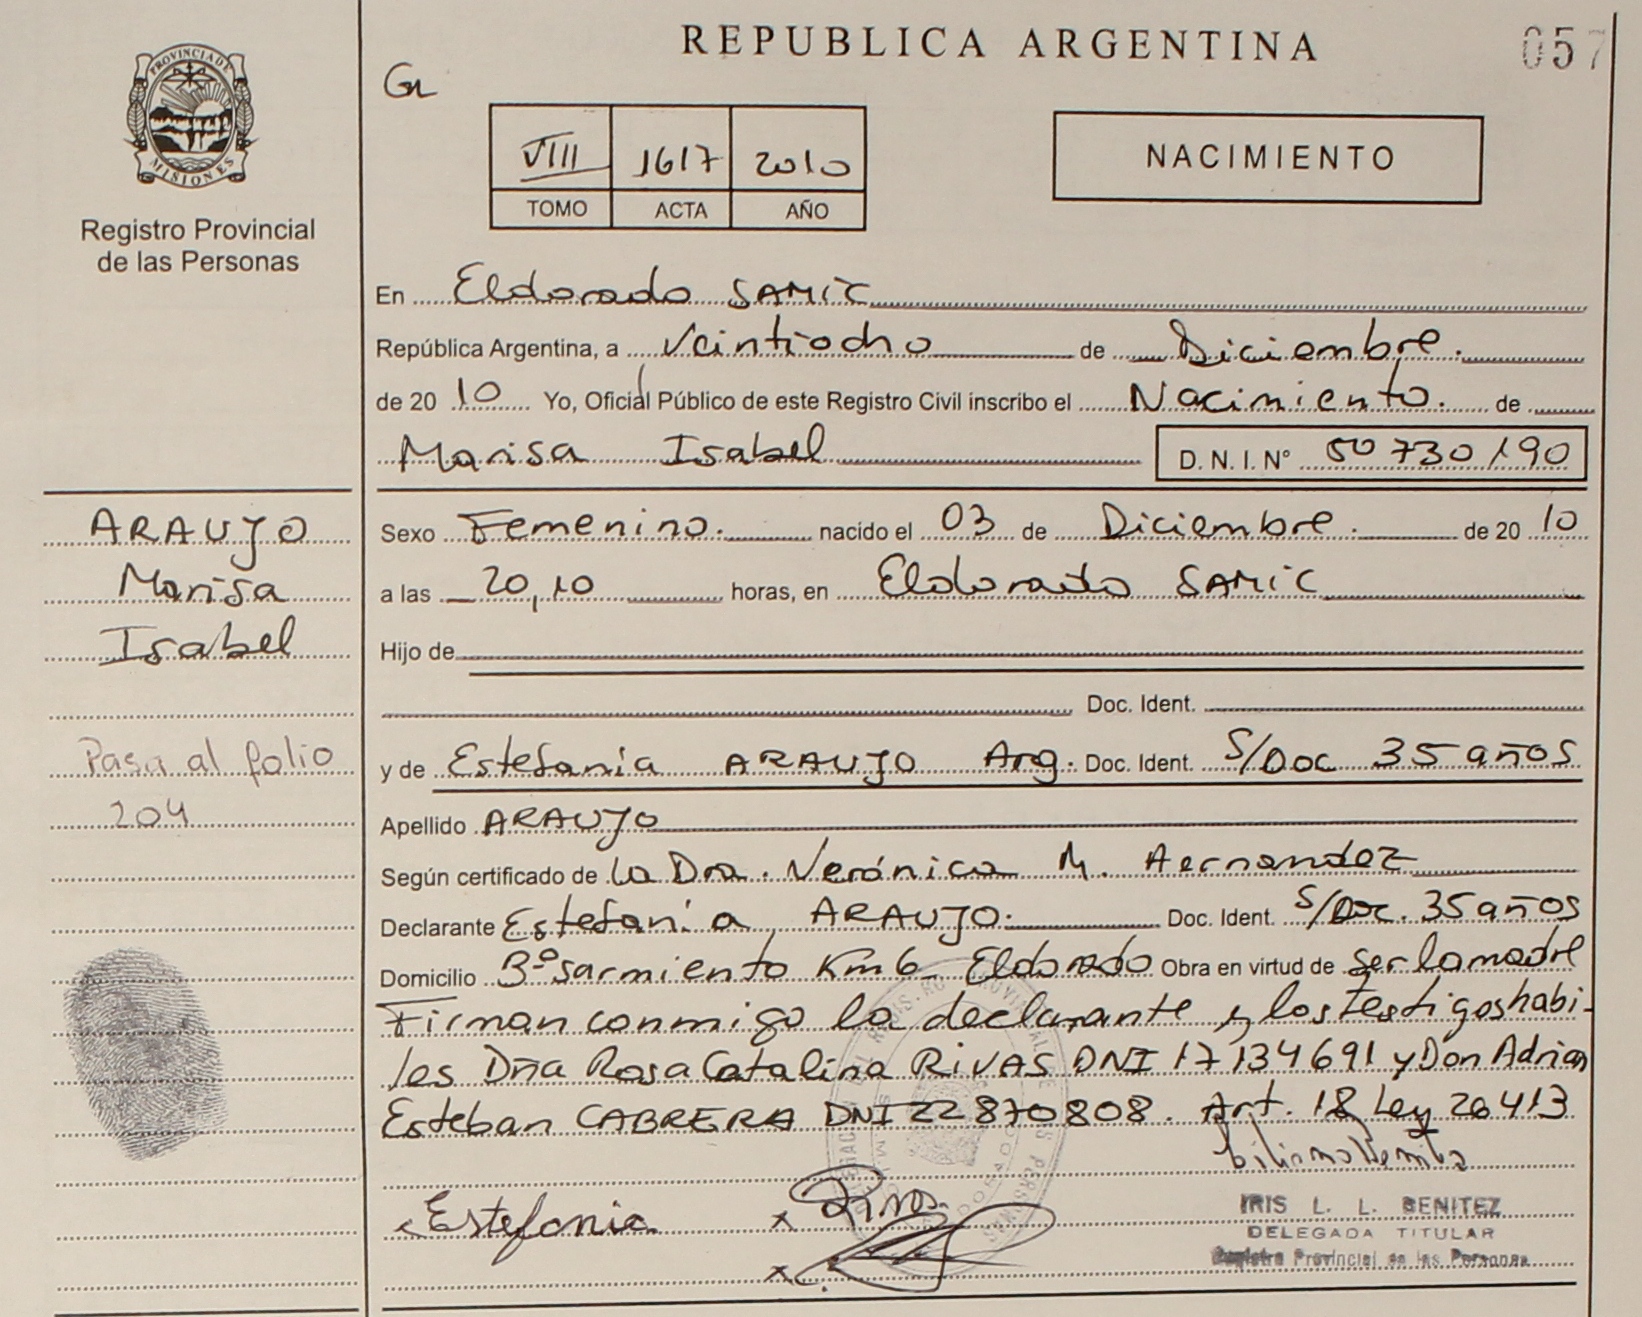 REPUBLICA ARGENTINA
057
PROVINCIA DE
MISIONES
Registro Provincial
de las Personas
GL
VIII 1617 2010
TOMO ACTA AÑO
NACIMIENTO
En Eldorado SAMIC
República Argentina, a Veintiocho de Diciembre.
de 2010 Yo, Oficial Público de este Registro Civil inscribo el Nacimiento. de
Marisa Isabel D.N.I.N° 50 730 190
ARAUJO
Marisa
Isabel
Pasa al folio
204
Sexo Femenino. nacido el 03 de Diciembre. de 2010
a las 20,10 horas, en Eldorado SAMIC
Hijo de
Doc. Ident.
y de Estefanía ARAUJO Arg. Doc. Ident. S/Doc 35 años
Apellido ARAUJO
Según certificado de la Dra. Verónica M. Hernandez
Declarante Estefanía ARAUJO. Doc. Ident. S/Doc. 35 años
Domicilio Bº Sarmiento Km 6 Eldorado Obra en virtud de ser la madre
Firman conmigo la declarante y los testigos habi-
les Dña Rosa Catalina RIVAS DNI 17134691 y Don Adrian
Esteban CABRERA DNI 22 870808. Art. 18 Ley 26413
x Estefania x
x
IRIS L. L. BENITEZ
DELEGADA TITULAR
Registro Provincial de las Personas